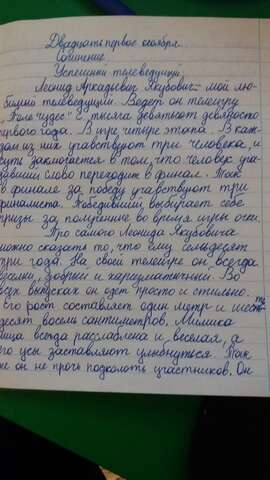 Двадцать первое ноября.
Сочинение.
Успешный телеведущий.
Леонид Аркадьевич Якубович – мой лю-
бимый телеведущий. Ведёт он телеигру
„Поле чудес" с тысяча девятьсот девяносто
первого года. В игре четыре этапа. В каж-
дом из них учавствуют три человека, и
суть заключается в том, что человек уга-
давший слово переходит в финал. Так
в финале за победу учавствуют три
финалиста. Победивший выбирает себе
призы за полученные во время игры очки.
Про самого Леонида Якубовича
можно сказать то, что ему семьдесят
три года. На своей телеигре он всегда
весёлый, добрый и харизматичный. Во
всех выпусках он одет просто и стильно.
его рост составляет один метр и шесть-
десят восемь сантиметров. Мимика
лица всегда расслаблена и веселая, а
его усы заставляют улыбнуться. Так
же он не прочь подколоть участников. Он